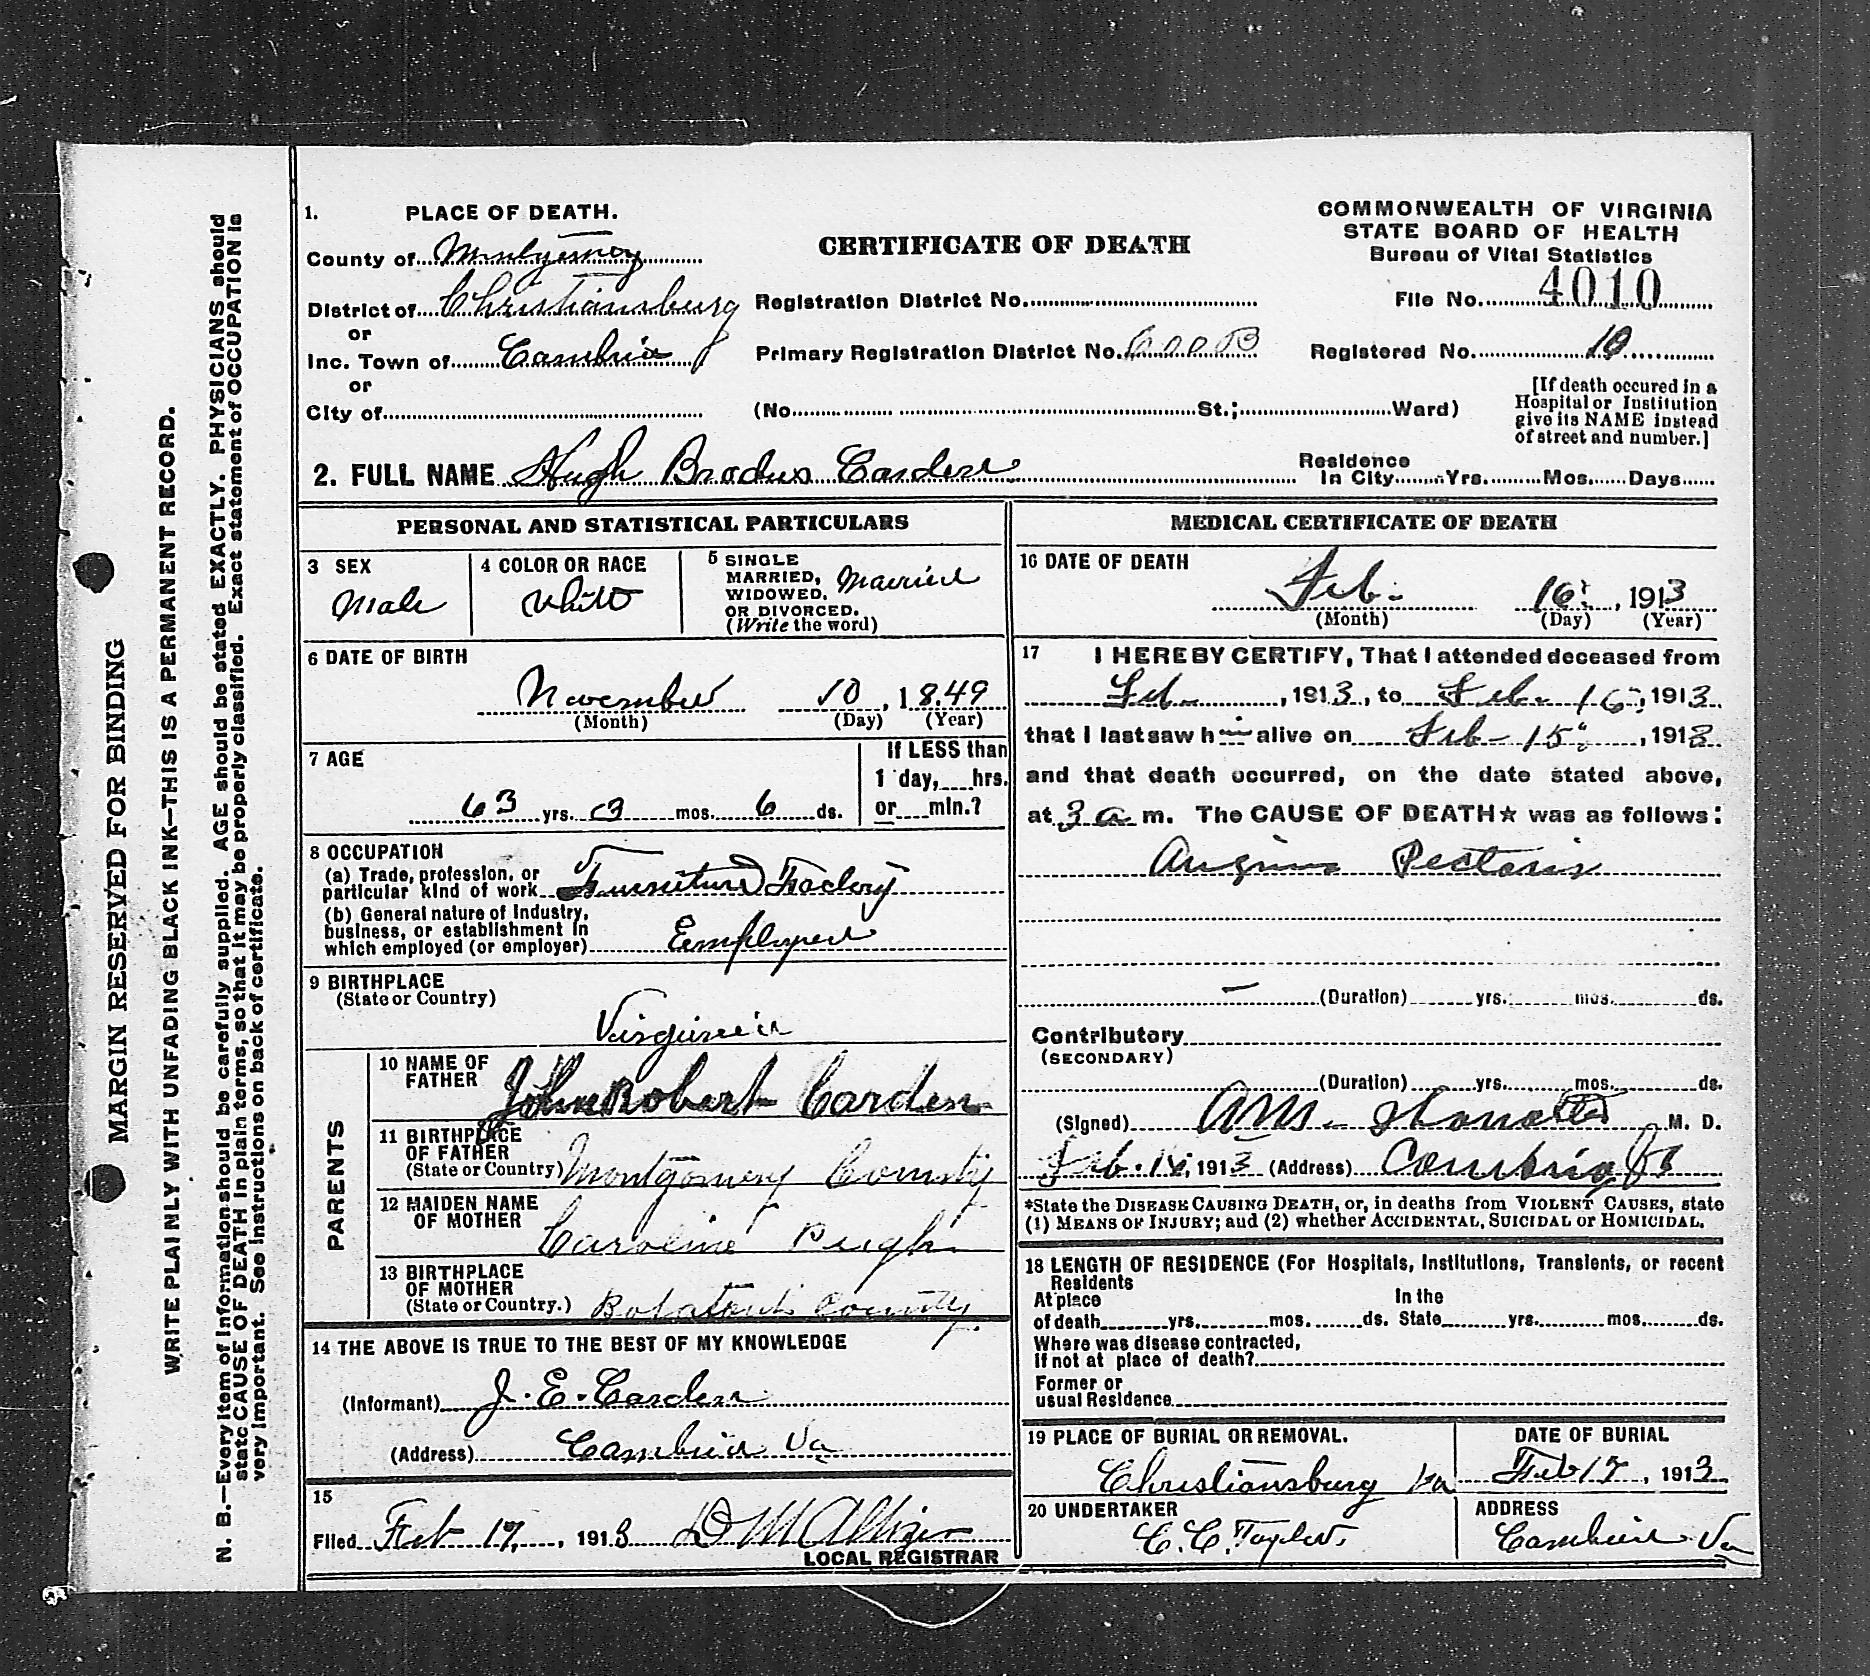 MARGIN RESERVED FOR BINDING
WRITE PLAINLY WITH UNFADING BLACK INK—THIS IS A PERMANENT RECORD.
N. B.—Every item of information should be carefully supplied. AGE should be stated EXACTLY. PHYSICIANS should
state CAUSE OF DEATH in plain terms, so that it may be properly classified. Exact statement of OCCUPATION is
very important. See instructions on back of certificate.
1. PLACE OF DEATH.
County of Montgomery
District of Christiansburg
or
Inc. Town of Cambria
or
City of
CERTIFICATE OF DEATH
Registration District No.
Primary Registration District No.
(No. St.; Ward)
COMMONWEALTH OF VIRGINIA
STATE BOARD OF HEALTH
Bureau of Vital Statistics
File No. 4010
Registered No. 10
[If death occured in a
Hospital or Institution
give its NAME instead
of street and number.]
2. FULL NAME Hugh Brodus Carden
Residence
In City Yrs. Mos. Days
PERSONAL AND STATISTICAL PARTICULARS
3 SEX
Male
4 COLOR OR RACE
White
5 SINGLE
MARRIED,
WIDOWED,
OR DIVORCED.
(Write the word)
Married
6 DATE OF BIRTH
November 10, 1849
(Month) (Day) (Year)
7 AGE
63 yrs. 3 mos. 6 ds.
If LESS than
1 day, hrs.
or min.?
8 OCCUPATION
(a) Trade, profession, or
particular kind of work Furniture Factory
(b) General nature of Industry,
business, or establishment in
which employed (or employer) Employee
9 BIRTHPLACE
(State or Country)
Virginia
PARENTS
10 NAME OF
FATHER
John Robert Carden
11 BIRTHPLACE
OF FATHER
(State or Country) Montgomery County
12 MAIDEN NAME
OF MOTHER
Caroline Pugh
13 BIRTHPLACE
OF MOTHER
(State or Country.) Botatout County
14 THE ABOVE IS TRUE TO THE BEST OF MY KNOWLEDGE
(Informant) J. E. Carden
(Address) Cambria Va
15
Filed Feb 17, 1913 D M Allizer
LOCAL REGISTRAR
MEDICAL CERTIFICATE OF DEATH
16 DATE OF DEATH
Feb. 16, 1913
(Month) (Day) (Year)
17 I HEREBY CERTIFY, That I attended deceased from
Feb. , 1913, to Feb. 16, 1913
that I last saw him alive on Feb 15, 1913
and that death occurred, on the date stated above,
at 3 a m. The CAUSE OF DEATH★ was as follows:
Angina Pectoris
(Duration) yrs. mos. ds.
Contributory
(SECONDARY)
(Duration) yrs. mos. ds.
(Signed) M. D.
Feb. , 1913 (Address) Cambria Va
*State the DISEASE CAUSING DEATH, or, in deaths from VIOLENT CAUSES, state
(1) MEANS OF INJURY; and (2) whether ACCIDENTAL, SUICIDAL or HOMICIDAL.
18 LENGTH OF RESIDENCE (For Hospitals, Institutions, Transients, or recent
Residents
At place
of death yrs. mos. ds.
In the
State yrs. mos. ds.
Where was disease contracted,
If not at place of death?
Former or
usual Residence
19 PLACE OF BURIAL OR REMOVAL.
Christiansburg Va
DATE OF BURIAL
Feb 17, 1913
20 UNDERTAKER
C. C. Taylor
ADDRESS
Cambria Va